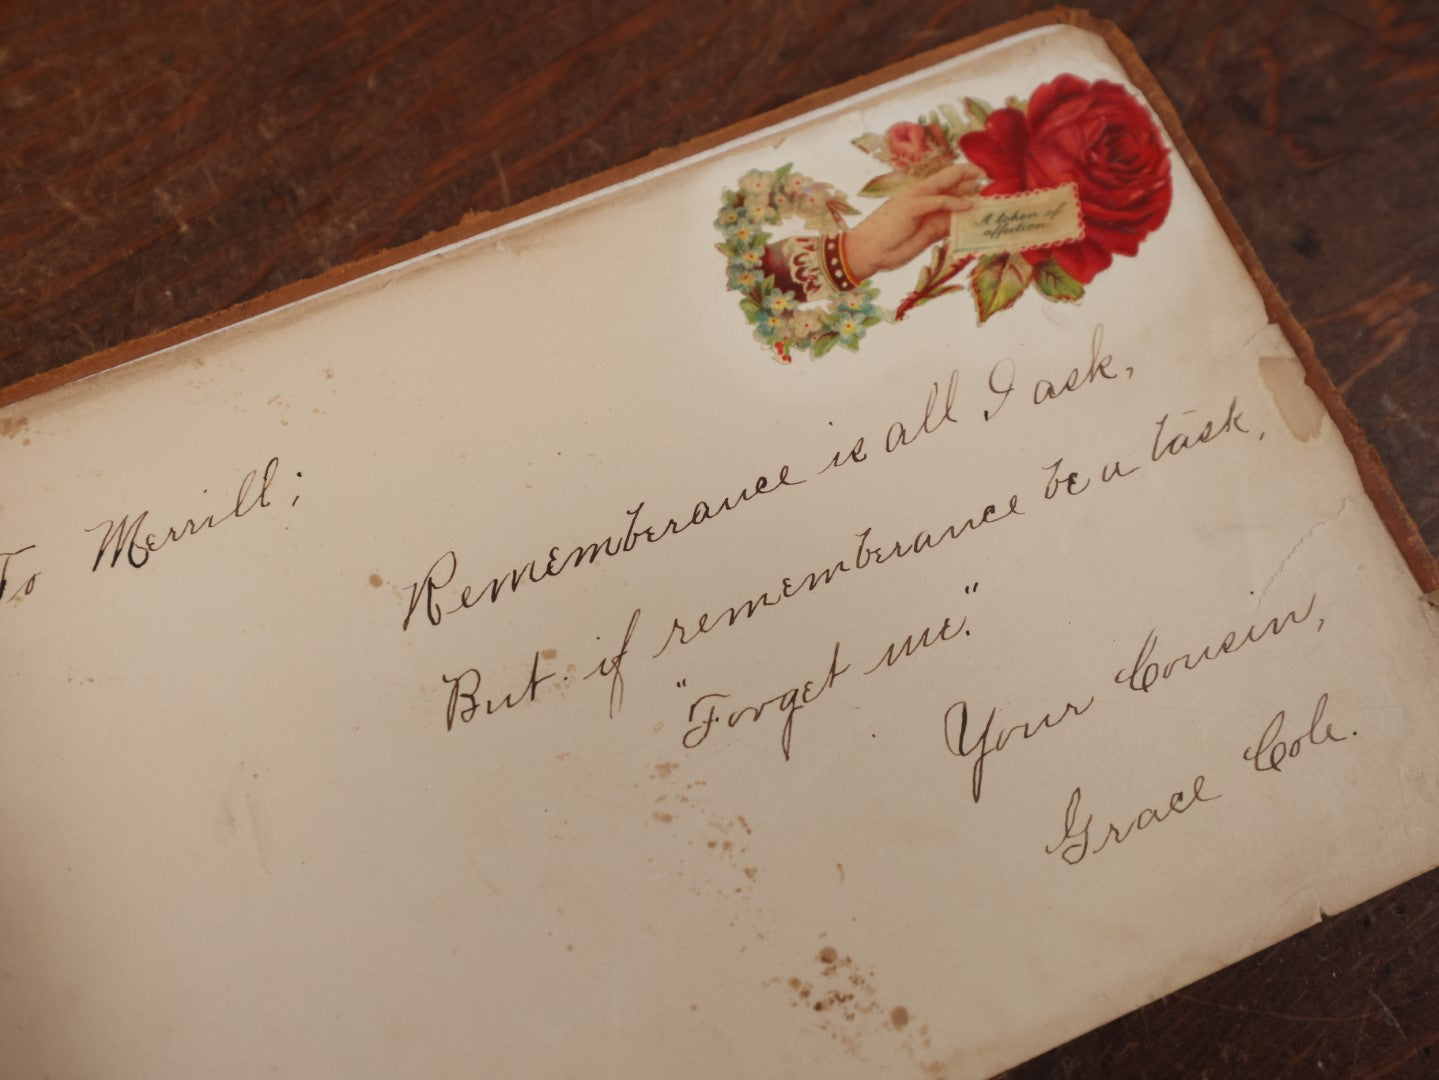 A token of
affection.
To Merrill;
Rememberance is all I ask,
But if rememberance be a task,
"Forget me."
Your Cousin,
Grace Cole.